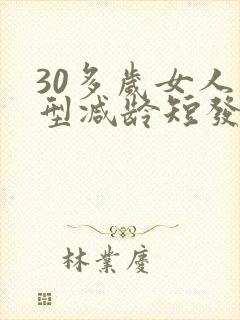 30多歲女人
型减龄短發
林業慶